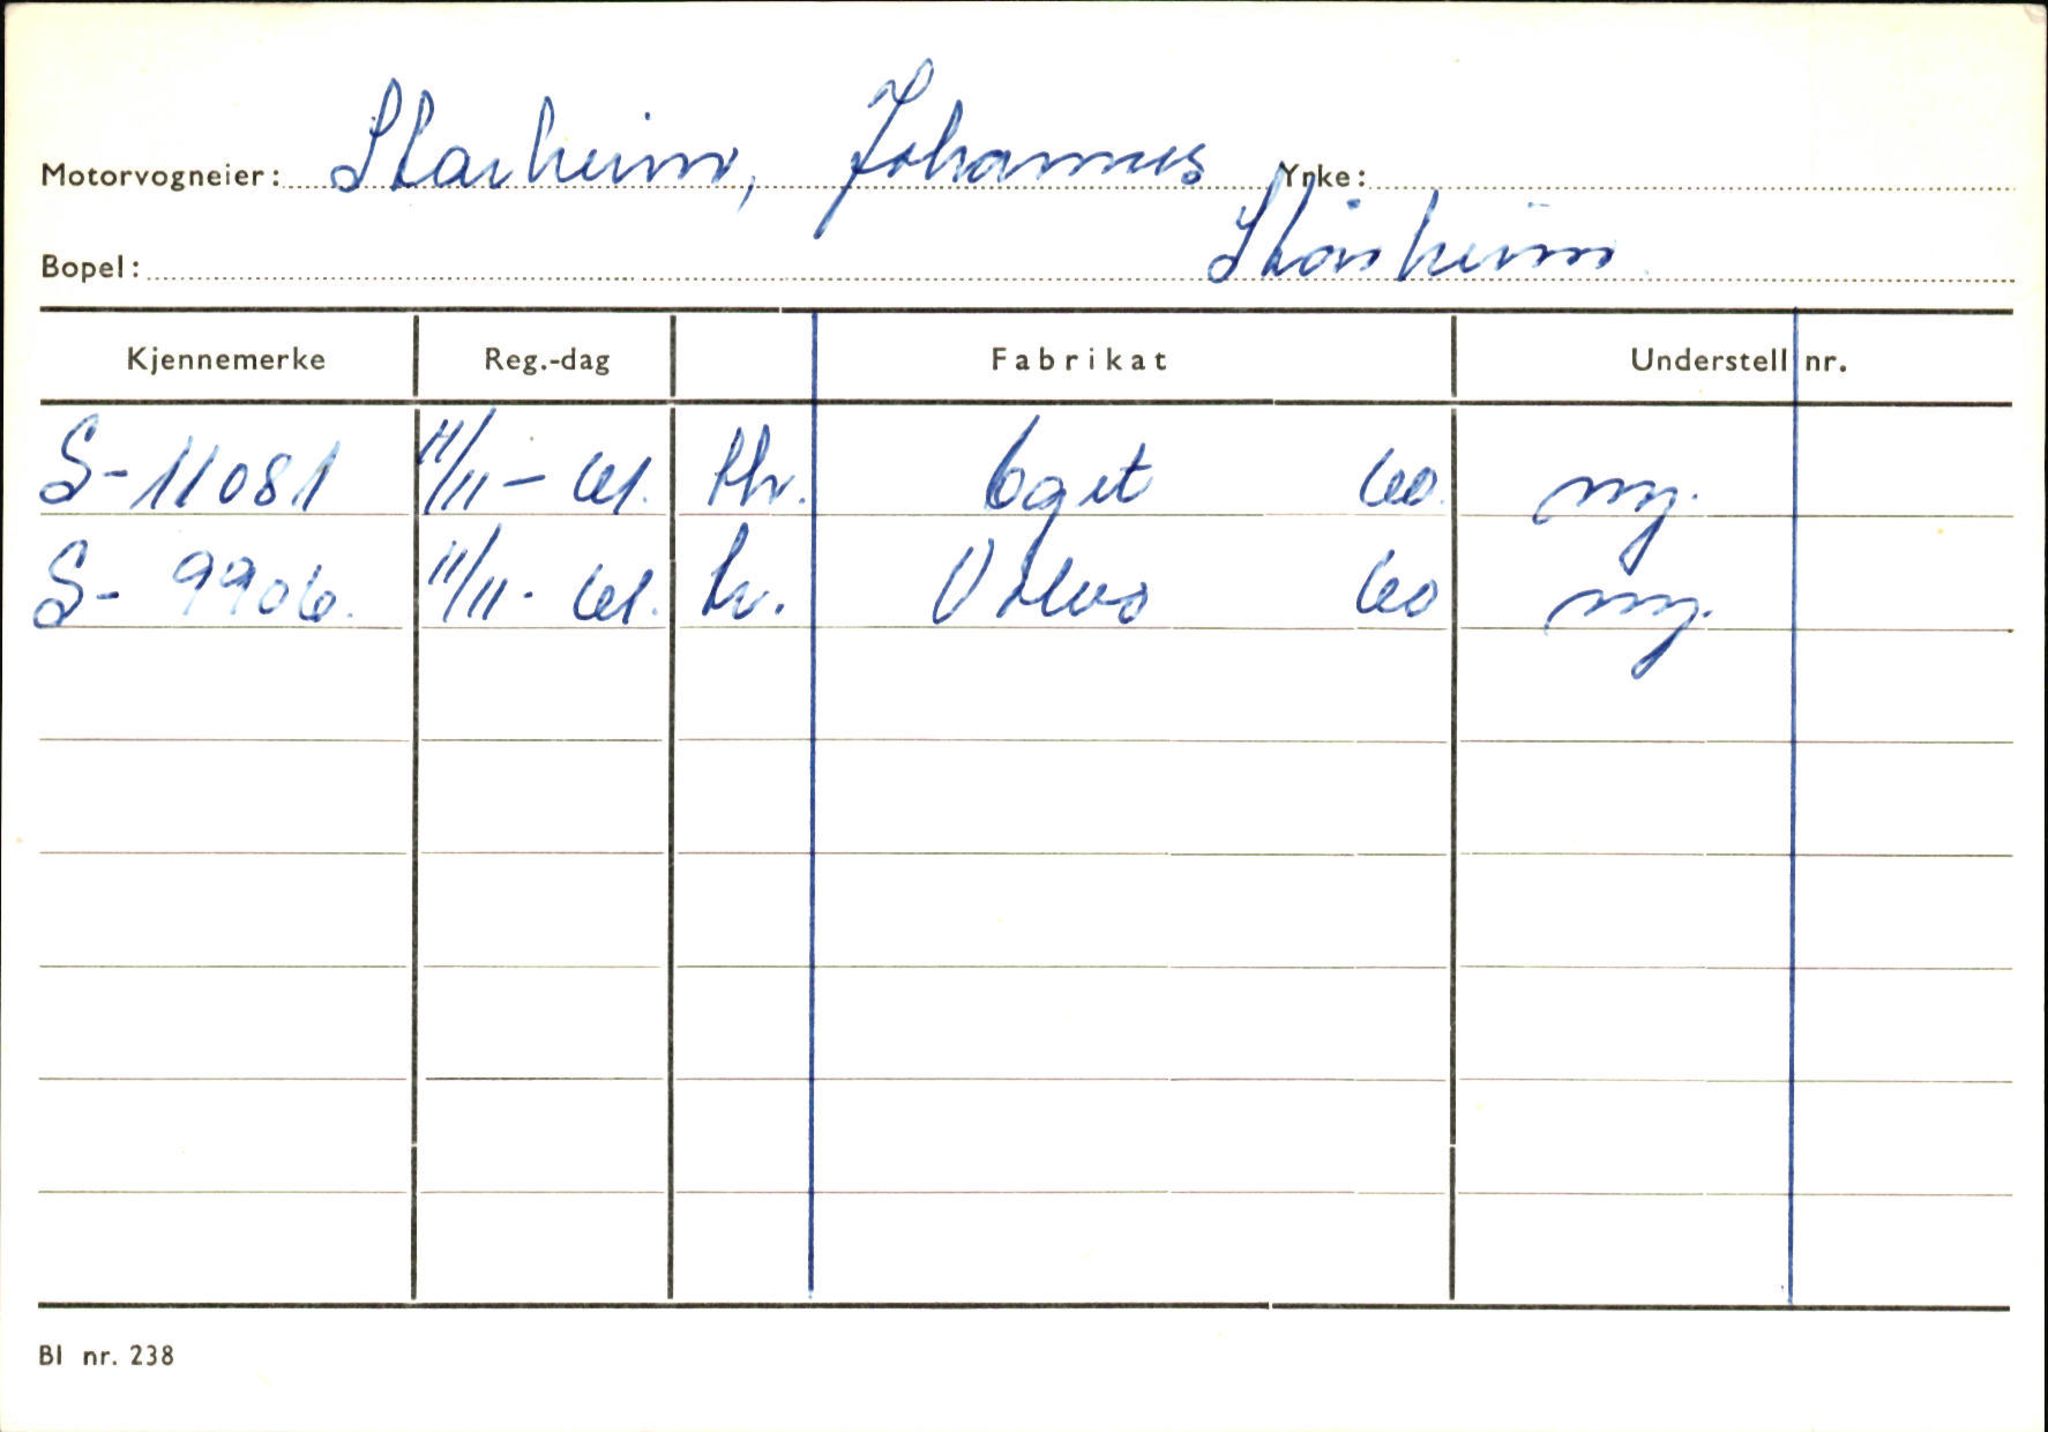 Motorvogneier: Starheim, Johannes Yrke:
Bopel: Stårheim.
Kjennemerke Reg.-dag Fabrikat Understell nr.
S-11081 11/11-61. thr. Eget 60. ny.
S-9906. 11/11-61. lv. Volvo 60 ny.
Bl nr. 238